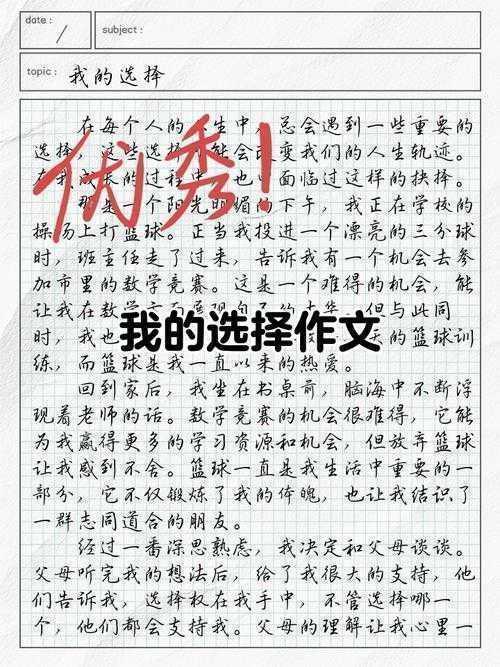 date:
/
subject:
topic: 我的选择
优秀!
在每个人的 生中,总会遇到一些重要的
选择,这些选择 能会改变我们的人生轨迹。
在我成长的过程中 也 面临过这样的抉择。
那是一个阳光明媚的下午,我正在学校的
操场上打篮球。正当我投进一个漂亮的三分球
时,班主任走了过来,告诉我有一个机会去参
加市里的数学竞赛。这是一个难得的机会,能
让我在数学 但与此同
我的选择作文
时,我也 天的篮球训
练,而篮球是我一直以来的热爱。
回到家后,我坐在书桌前,脑海中不断浮
现着老师的话。数学竞赛的机会很难得,它能
为我赢得更多的学习资源和机会,但放弃篮球
让我感到不舍。篮球一直是我生活中重要的一
部分,它不仅锻炼了我的体魄,也让我结识了
一群志同道合的朋友。
经过一番深思熟虑,我决定和父母谈谈。
父母听完我的想法后,给了我很大的支持,他
们告诉我,选择权在我手中,不管选择哪一
个,他们都会支持我。父母的理解让我心里一